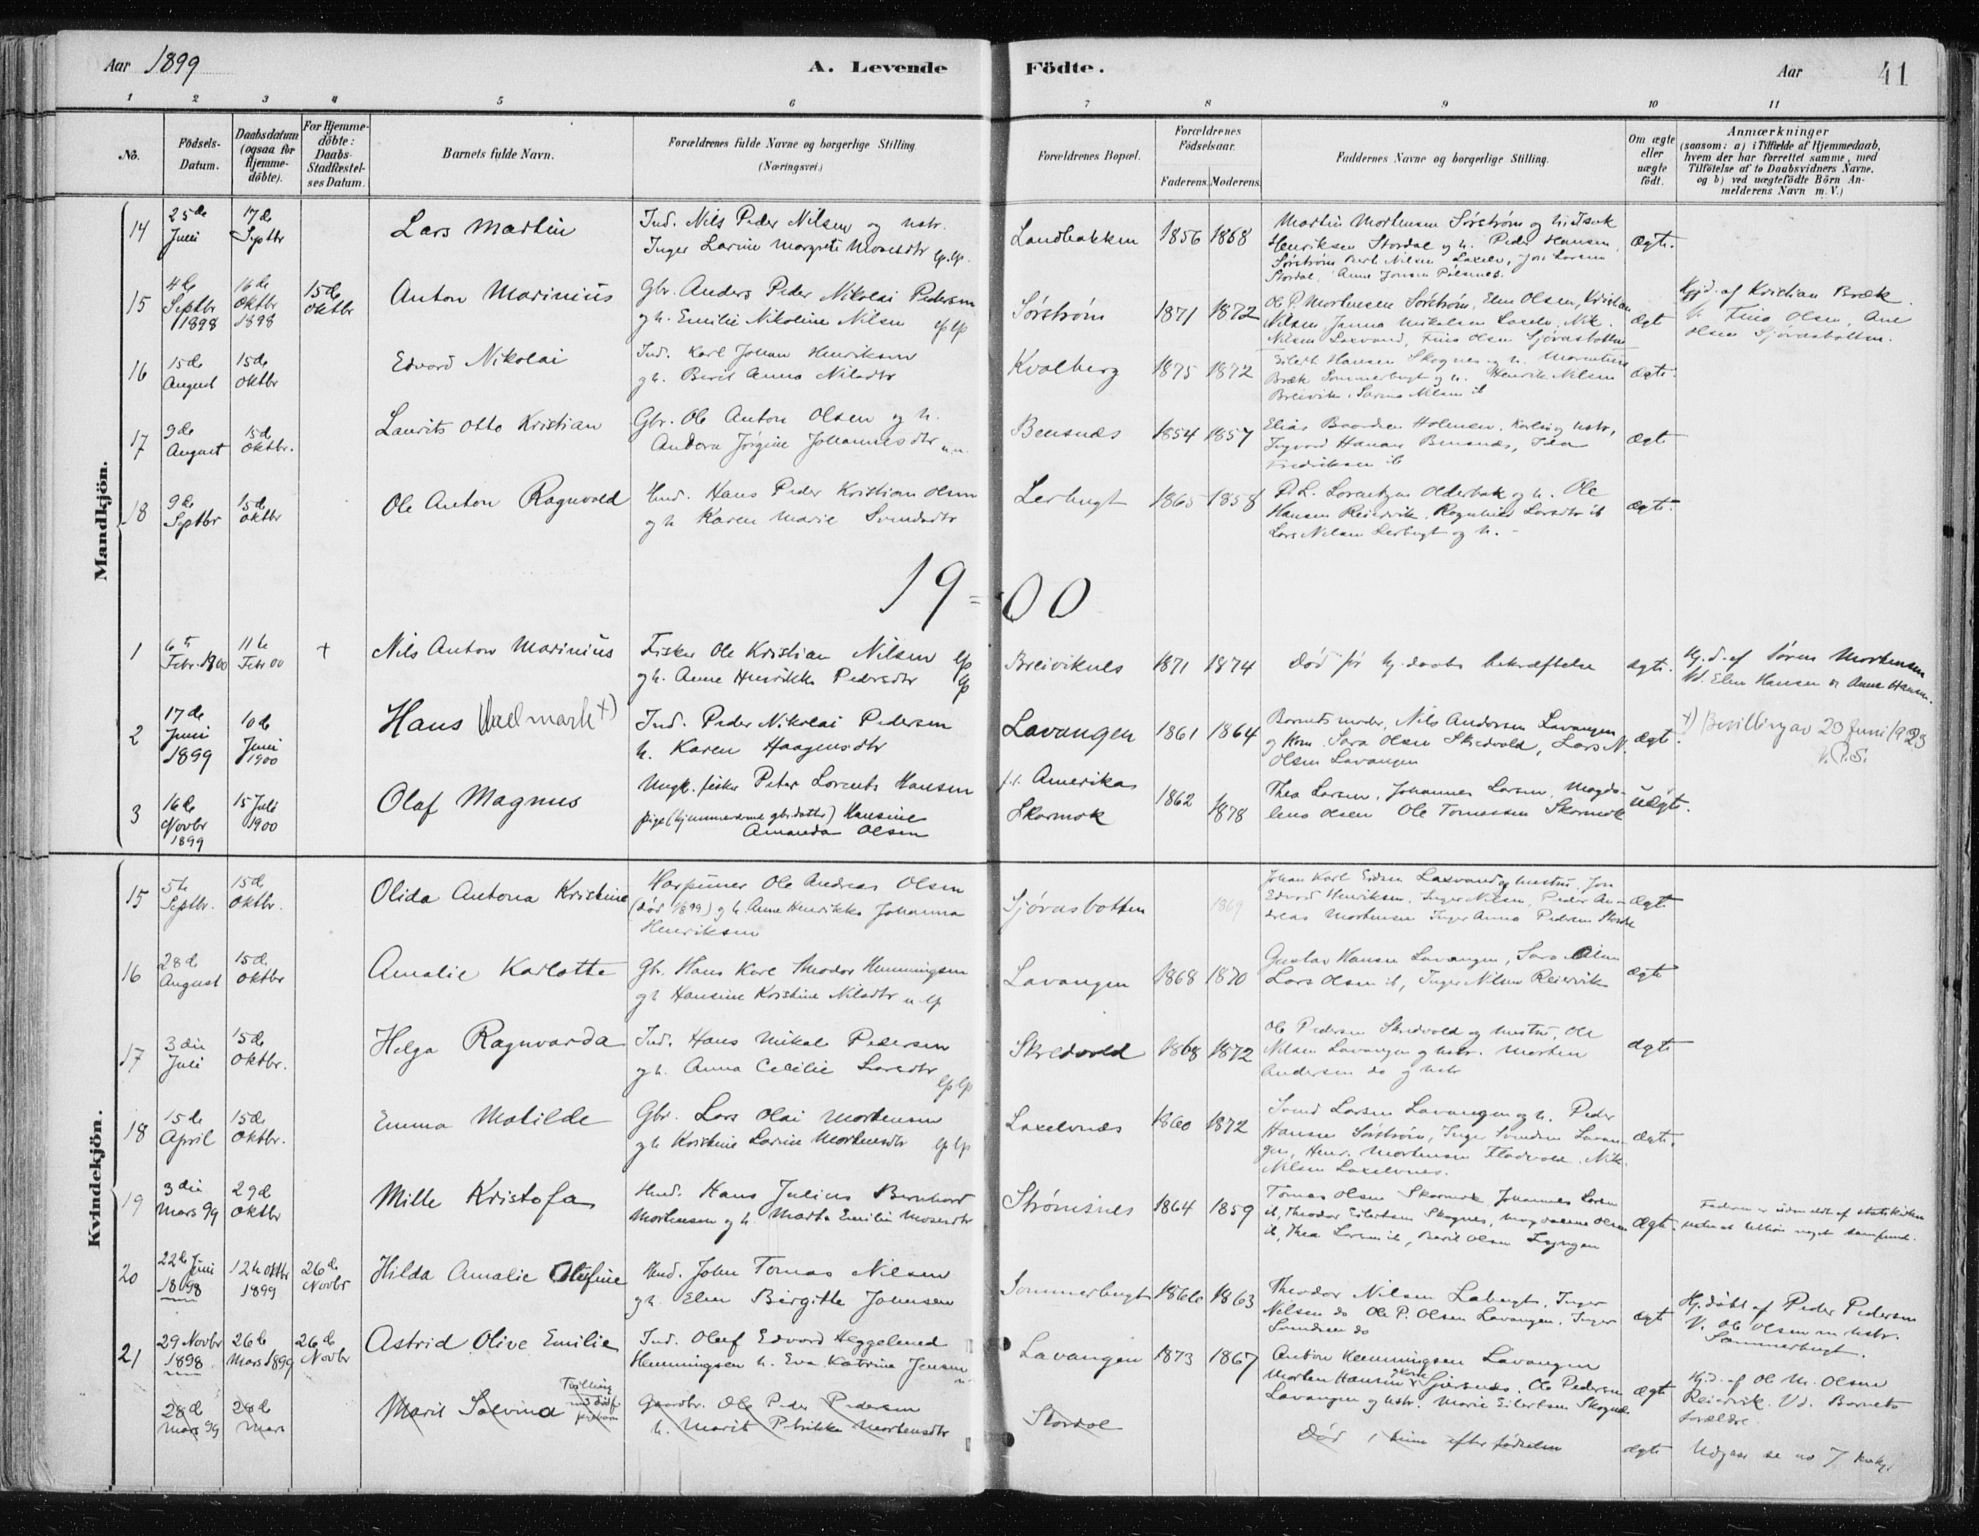 Aar 1899
A. Levende
Födte.
Aar 41
1 2 3 4 5 6 7 8 9 10 11
No.
Födsels-
Datum.
Daabsdatum
(ogsaa for
Hjemme-
döbte).
For Hjemme-
döbte:
Daabs-
Stadfæstel-
ses Datum.
Barnets fulde Navn.
Forældrenes fulde Navne og borgerlige Stilling
(Næringsvei.)
Forældrenes Bopæl.
Forældrenes
Födselsaar.
Faderens. Moderens.
Faddernes Navne og borgerlige Stilling.
Om ægte
eller
uægte
födt.
Anmærkninger
(saasom: a) i Tilfælde af Hjemmedaab,
hvem der har forrettet samme, med
Tilföielse af to Daabsvidners Navne.
og b) ved uægtefödte Börn An-
melderens Navn m. V.)
Mandkjön.
14
25de
Juli
17de
Septbr
Lars Martin
Ind. Nils Peder Nilsen og hstr.
Inger Larine Margrete lp.lp.
Landbakken
1856 1868
Martin Mortensen Sørstrøm og h. Isak
Henriksen Stordal og h. Peder Hansen
Sørstrøm Nilsen Lakselv, Larsen
Stordal, Anne Jonsen
ægte.
15
4de
Septbr
1898
16de
Oktbr
1898
15de
Oktbr
Anton Marinius
Gbr. Anders Peder Nikolai Pedersen
og h. Emilie Nikoline Nilsen lp lp
Sørstrøm
1871 1872
Ole P. Mortensen Sørstrøm, Elen Olsen, Kristian
Nilsen, Mikalsen Nik.
Nilsen Laxvand, Olsen Sjøvasbotten
ægt
Hjd. af Kristian Bræk.
V. Olsen, Ane
Olsen Sjövasbotten.
16
15de
August
15de
Oktbr
Edvard Nikolai
Ind. Karl Johan Henriksen
og h. Berit Anna Nilsdtr
Kvalberg
1875 1872
Eilert Hansen Skognes og h.
Bræk Sommerbugt og h. Henrik Nilsen
Breivik, Nilsen ib
ægte.
17
9de
August
15de
Oktbr.
Laurits Otto Kristian
Gbr. Ole Anton Olsen og h.
Andora Jørgine Johannesdtr n.n.
Bensnes
1854 1857
Elias Holmen, og hstr,
Ingvard Hansen Bensnes,
Fredriksen ib
ægte
18
9de
Septbr
15de
Oktbr
Ole Anton Ragnvald
Hmd. Hans Peder Kristian Olsen
og h Karen Marie
Lerbugt
1865 1858
P. L. Lorentzen Olderbak og h. Ole
Hansen Reiervik, Ragnhild Larsdtr ib
Lars Nilsen Lerbugt og h. -
ægte.
19 = 00
1
6te
Febr. 1900
11te
Febr 00
+
Nils Anton Marinius
Fisker Ole Kristian Nilsen lp
og h. Anne Henrikke Pedersdtr lp
Breiviknes
1871 1874
Død før hj.daabs bekræftelse
ægte.
Hj.d. af Søren Mortensen
Vd. Elen Hansen og Anne Hansen
2
17de
Juni
1899
10de
Juni
1900
Hans Hælmark +)
Ind. Peder Nikolai Pedersen
h. Karen Haagensdtr
Lavangen
1861 1864
Barnets moder, Nils Andersen Lavangen
og kone Sara Olsen Skredvold, Lars N.
Olsen Lavangen
ægte.
+) Bevilling av 23 Juni 1923
P.S.
3
16de
Novbr
1899
15 Juli
1900
Olaf Magnus
Ungk. fisker Peter Lorents Hansen
pige (hjemmeværende gbr.datter) Hansine
Amanda Olsen
f.t. Amerika
Skarmok
1862
1878
Thea Larsen, Johannes Larsen, Magda-
lena Olsen Ole Tomassen Skarmok
uægte.
Kvindekjön.
15
5te
Septbr.
15de
Oktbr.
Olida Antona Kristine
Harpuner Ole Andreas Olsen
(død 1899) og h. Anne Henrikke Johanna
Henriksen
Sjövasbotten
1869
Johan Karl Laxvand og hustru, Jon
Edvard Henriksen, Inger Nilsen, Peder An-
dreas Mortensen Inger Anna Pedersen
ægte
16
28de
August
15de
Oktbr
Amalie Karlotte
Gbr. Hans Karl Theodor Hemmingsen
og h Hansine Kristine Nilsdtr n lp
Lavangen
1868 1870
Gustav Hansen Lavangen, Sara
Lars Olsen ib, Inger Nilsen Reiervik
ægte
17
3die
Juli
15de
Oktbr.
Helga Ragnvarda
Ind. Hans Mikal Pedersen
og h. Anna Cecilie Larsdtr lp lp
Skredvold
1868 1872
Ole Pedersen Skredvold og hustru, Ole
Nilsen Lavangen og hstr. Morten
Andersen do og hstr
ægte
18
15de
April
15de
Oktbr.
Emma Matilde
Gbr. Lars Olai Mortensen
og h Kristine Larine Mortensdtr lp lp
Laxelvnes
1860 1872
Svend Larsen Lavangen og h. Peder
Hansen Sørstrøm, Inger Svendsen Lavan-
gen, Henr. Mortensen Nik.
Nilsen Laxelvnes.
ægte.
19
3die
Mars 99
29de
Oktbr
Mille Kristofa
Hmd. Hans Julius Bernhard
Mortensen og h. Marta Emilie
Strømsnes
1864 1859
Tomas Olsen Skarmok Johannes Larsen
ib, Theodor Eilertsen Skognes, Magdalene Olsen
ib, Thea Larsen ib, Berit Olsen Lyngen
ægte.
Faderen er udmeldt af statskirken
uden at tilhøre noget samfund.
20
22de Juni
1898
12te Oktbr
1899
26de
Novbr
Hilda Amalie Olufine
Hmd. John Tomas Nilsen
og h. Elen Birgitte Johnsen
Sommerbugt
1866 1863
Theodor Nilsen Labugt, Inger
Nilsen do Ole P. Olsen Lavangen, Inger
Svendsen do
ægt
Hj.døbt af Peder Pedersen
V. Ole Olsen m hstr.
Sommerbugt.
21
29 Novbr
1898
26de
Mars 1899
26de
Novbr
Astrid Olive Emilie
Ind. Oluf Edvard Heggelund
Hemmingsen h. Eva Katrine Jensen
Lavangen
1873 1867
Anton Hemmingsen Lavangen
Morten Hansen Ole Pedersen
Lavangen og hstr. Marie Eilertsen Skognes
ægt
Hj.d. af Ole M. Olsen
Reiervik. Vd. Barnets
forældre
28de
Mars 99
28de
Mars
Marit Salvina
Tvilling
Gaardbr. Ole Peder Pedersen
h. Marit Mortensdtr
Stordal
Død 1 time efter fødselen
ægte
Udgaar se no 7